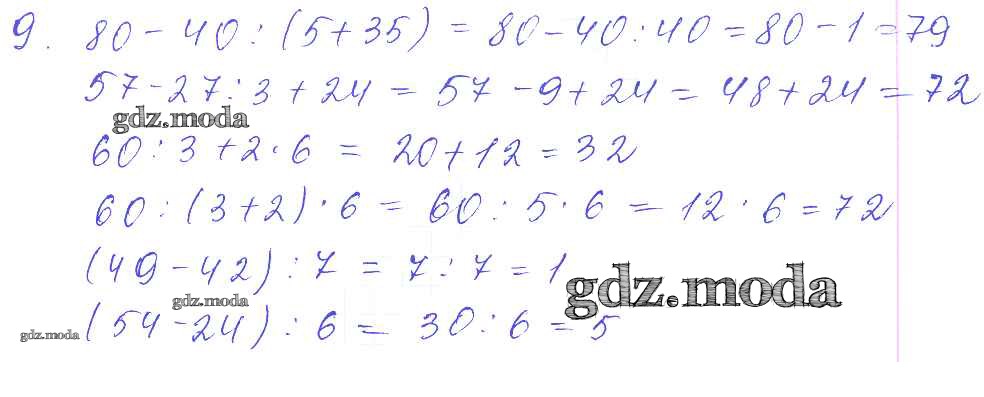 9. 80 - 40 : (5 + 35) = 80 - 40 : 40 = 80 - 1 = 79
57 - 27 : 3 + 24 = 57 - 9 + 24 = 48 + 24 = 72
gdz.moda
60 : 3 + 2 · 6 = 20 + 12 = 32
60 : (3 + 2) · 6 = 60 : 5 · 6 = 12 · 6 = 72
(49 - 42) : 7 = 7 : 7 = 1
gdz.moda
gdz.moda
(54 - 24) : 6 = 30 : 6 = 5
gdz.moda